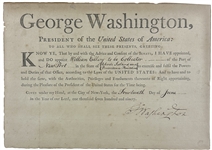 George Washington,
President of the United States of America,
TO ALL WHO SHALL SEE THESE PRESENTS, GREETING.
KNOW YE, That by and with the Advice and Consent of the Senate, I HAVE appointed,
and DO appoint William Ellery to be Collector of the Port
of NewPort in the State of Rhode Island to execute and fulfil the Powers
and Duties of that Office, according to the Laws of the UNITED STATES: And to have and to
hold the same, with the Authorities, Privileges and Emoluments thereunto of Right appertaining,
during the Pleasure of the President of the United States for the Time being.
Given under my Hand, at the City of New-York, the Day of June in
the Year of our Lord, one thousand seven hundred and ninety.
G. Washington